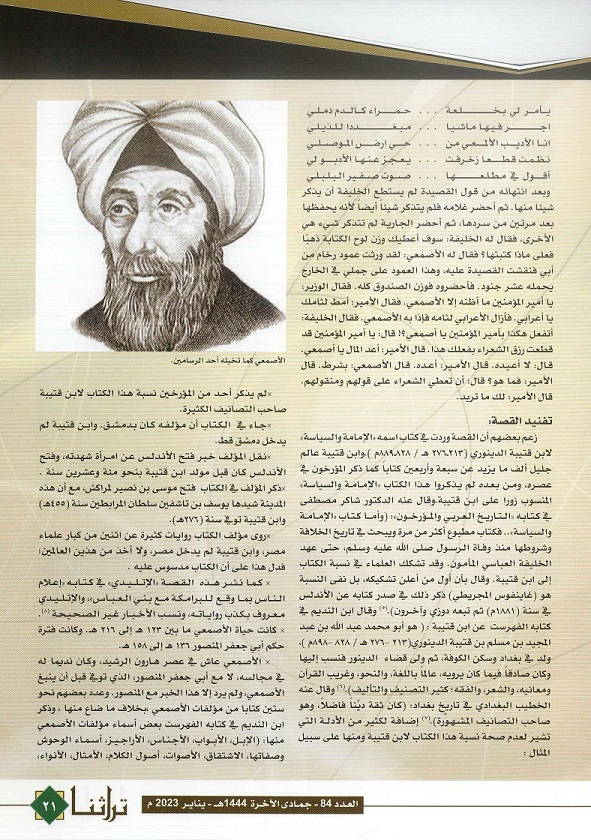 يـأمـر لي بـخـلـعـة . . . حـمـراء كـالـدم دملي
اجـر فـيـها مـاشـيـا . . . مـبـغـددا لـلـذيلي
انا الأديب الألمعي من . . . حـي ارض الموصلي
نظمت قطعـا زخرفت . . . يـعـجـز عنـها الأدبو لي
أقول في مطلعـهـا . . . صوت صفير البلبلي
وبعد انتهائه من قول القصيدة لم يستطع الخليفة أن يذكر
شيئا منها. ثم أحضر غلامه فلم يتذكر شيئاً أيضا لأنه يحفظها
بعد مرتين من سردها، ثم أحضر الجارية لم تتذكر شيء هي
الأخرى، فقال له الخليفة: سوف أعطيك وزن لوح الكتابة ذهباً
فعلى ماذا كتبتها؟ فقال له الأصمعي: لقد ورثت عمود رخام من
أبي فنقشت القصيدة عليه، وهذا العمود على جملي في الخارج
يحمله عشر جنود. فأحضروه فوزن الصندوق كله. فقال الوزير:
يا أمير المؤمنين ما أظنه إلا الأصمعي. فقال الأمير: أمط لثامك
يا أعرابي. فأزال الأعرابي لثامه فإذا به الأصمعي. فقال الخليفة:
أتفعل هكذا بأمير المؤمنين يا أصمعي؟! قال: يا أمير المؤمنين قد
قطعت رزق الشعراء بفعلك هذا. قال الأمير: أعد المال يا أصمعي.
قال: لا أعيده. قال الأمير: أعده. قال الأصمعي: بشرط. قال
الأمير: فما هو؟ قال: أن تعطي الشعراء على قولهم ومنقولهم.
قال الأمير: لك ما تريد.
تفنيد القصة:
زعم بعضهم أن القصة وردت في كتاب اسمه «الإمامة والسياسة»
لابن قتيبة الدينوري (٢١٣-٢٧٦ هـ / ٨٢٨-٨٨٩م )،وابن قتيبة عالم
جليل ألف ما يزيد عن سبعة وأربعين كتاباً كما ذكر المؤرخون في
عصره، ومن بعده لم يذكروا هذا الكتاب «الإمامة والسياسة»
المنسوب زورا على ابن قتيبة،وقال عنه الدكتور شاكر مصطفى
في كتابه «التاريخ العربي والمؤرخون»: (وأما كتاب «الإمامة
والسياسة»، فكتاب مطبوع أكثر من مرة ويبحث في تاريخ الخلافة
وشروطها منذ وفاة الرسول صلى الله عليه وسلم، حتى عهد
الخليفة العباسي المأمون. وقد تشكك العلماء في نسبة الكتاب
إلى ابن قتيبة. وقال بأن أول من أعلن تشكيكه، بل نفى النسبة
هو (غاينغوس المجريطي) ذكر ذلك في صدر كتابه عن الأندلس
في سنة (١٨٨١م) ثم تبعه دوزي وآخرون).(٥) وقال ابن النديم في
كتابه الفهرست عن ابن قتيبة : ( هو أبو محمد عبد الله بن عبد
المجيد بن مسلم بن قتيبة الدينوري(٢١٣ -٢٧٦ هـ / ٨٢٨ -٨٩٨م )،
ولد في بغداد وسكن الكوفة، ثم ولى قضاء الدينور فنسب إليها
وكان صادقاً فيما كان يرويه، عالما باللغة، والنحو، وغريب القرآن
ومعانيه، والشعر، والفقه؛ كثير التصنيف والتأليف).(٦) وقال عنه
الخطيب البغدادي في تاريخ بغداد: (كان ثقة ديّنا فاضلًا، وهو
صاحب التصانيف المشهورة).(٧) إضافة لكثير من الأدلة التي
تشير لعدم صحة نسبة هذا الكتاب لابن قتيبة ومنها على سبيل
المثال :
الأصمعي كما تخيله أحد الرسامين.
×لم يذكر أحد من المؤرخين نسبة هذا الكتاب لابن قتيبة
صاحب التصانيف الكثيرة.
×جـاء في الكتاب أن مؤلفه كان بدمشق. وابن قتيبة لم
يدخل دمشق قط.
×نقل المؤلف خبر فتح الأندلس عن امـرأة شهدته، وفتح
الأندلس كان قبل مولد ابن قتيبة بنحو مئة وعشرين سنة .
×ذكر المؤلف في الكتاب فتح موسى بن نصير لمراكش، مع أن هذه
المدينة شيدها يوسف بن تاشفين سلطان المرابطين سنة (٤٥٥هـ)
وابن قتيبة توفي سنة (٢٧٦هـ).
×روى مؤلف الكتاب روايات كثيرة عن اثنين من كبار علماء
مصر، وابن قتيبة لم يدخل مصر، ولا أخذ من هذين العالمين؛
فدل هذا على أن الكتاب مدسوس عليه .
× كما نشر هذه القصة «الإتليدي» في كتابـه «إعلام
الناس بما وقع للبرامكة مع بني العباس»، والإتليدي
معروف بكذب رواياتـه، ونسب الأخبار غير الصحيحة (٨).
× كانت حياة الأصمعي ما بين ١٢٣ هـ إلى ٢١٦ هـ. وكانت فترة
حكم أبي جعفر المنصور ١٣٦ هـ إلى ١٥٨ هـ.
× الأصمعي عاش في عصر هارون الرشيد، وكان نديما له
في مجالسه، لا مع أبي جعفر المنصور، الذي توفي قبل أن ينبغ
الأصمعي، ولم يرد إلا هذا الخبر مع المنصور. وعدد بعضهم نحو
ستين كتابا من مؤلفات الأصمعي ،بخلاف ما ضاع منها ، وذكر
ابن النديم في كتابه الفهرست بعض أسماء مؤلفات الأصمعي
منها: (الإبل، الأبواب، الأجناس، الأراجيز، أسماء الوحوش
وصفاتها، الاشتقاق، الأصوات، أصول الكلام، الأمثال، الأنواء،
العدد 84 - جمادى الآخرة 1444هـ - يناير 2023 م
تراثنا
٢١